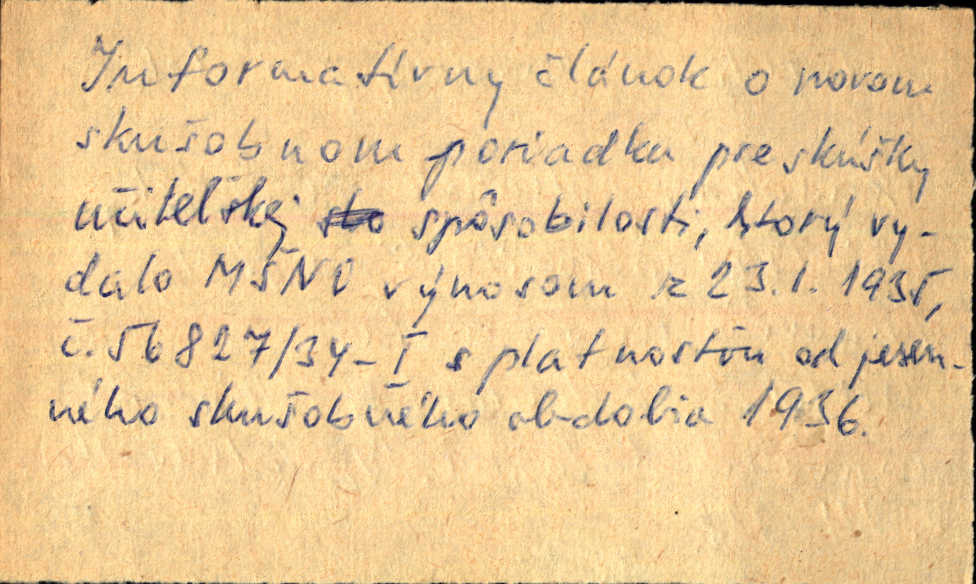 Informatívny článok o novom
skušobnom poriadku pre skúšky
učiteľskej spôsobilosti, ktorý vy-
dalo MŠNO výnosom z 23.1.1935,
č. 56827/34-I s platnosťou od jesen-
ného skušobného obdobia 1936.